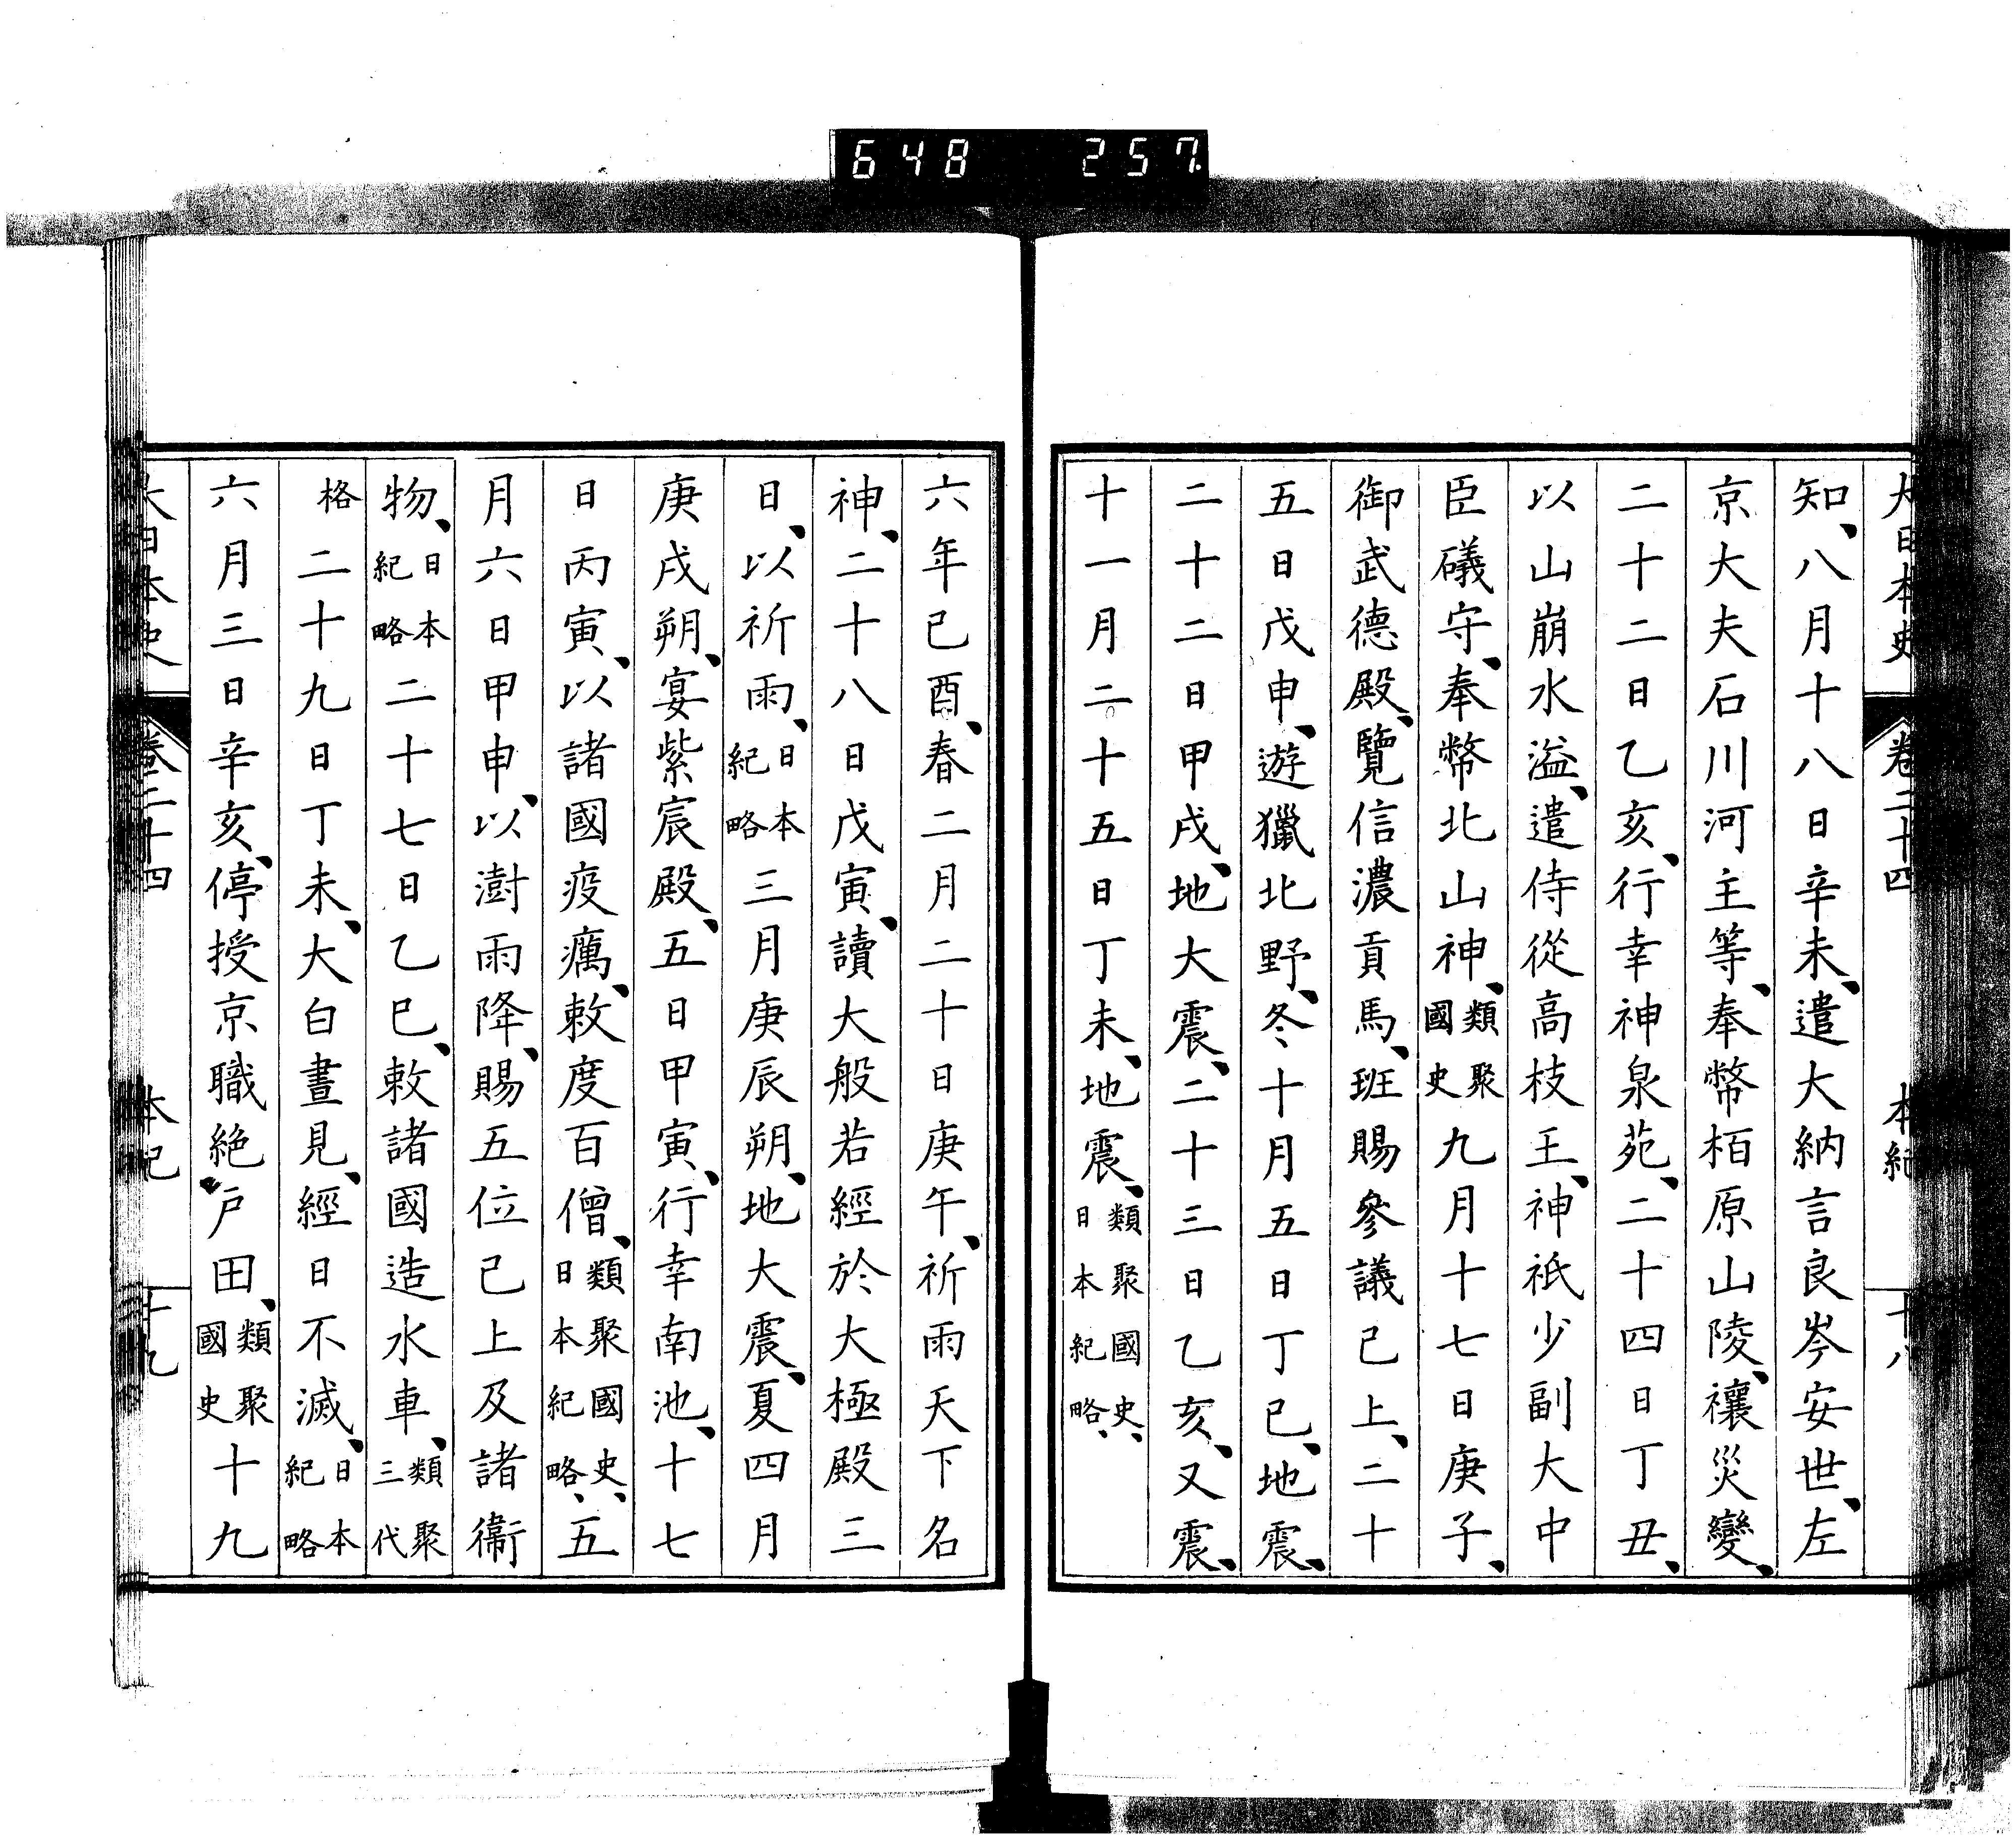 648 257
大日本史 卷二十四 本紀 十八
知、八月十八日辛未、遣大納言良岑安世、左
京大夫石川河主等、奉幣栢原山陵、禳災變、
二十二日乙亥、行幸神泉苑、二十四日丁丑、
以山崩水溢、遣侍從高枝王、神祇少副大中
臣礒守、奉幣北山神、類聚國史九月十七日庚子、
御武德殿、覽信濃貢馬、班賜參議已上、二十
五日戊申、遊獵北野、冬十月五日丁巳、地震、
二十二日甲戌、地大震、二十三日乙亥、又震、
十一月二十五日丁未、地震、類聚國史、日本紀略、
六年己酉、春二月二十日庚午、祈雨天下名
神、二十八日戊寅、讀大般若經於大極殿三
日、以祈雨、日本紀略三月庚辰朔、地大震、夏四月
庚戌朔、宴紫宸殿、五日甲寅、行幸南池、十七
日丙寅、以諸國疫癘、敕度百僧、類聚國史、日本紀略、五
月六日甲申、以澍雨降、賜五位已上及諸衞
物、日本紀略二十七日乙巳、敕諸國造水車、類聚三代
格二十九日丁未、大白晝見、經日不滅、日本紀略
六月三日辛亥、停授京職絕戶田、類聚國史十九
大日本史 卷二十四 本紀 十九